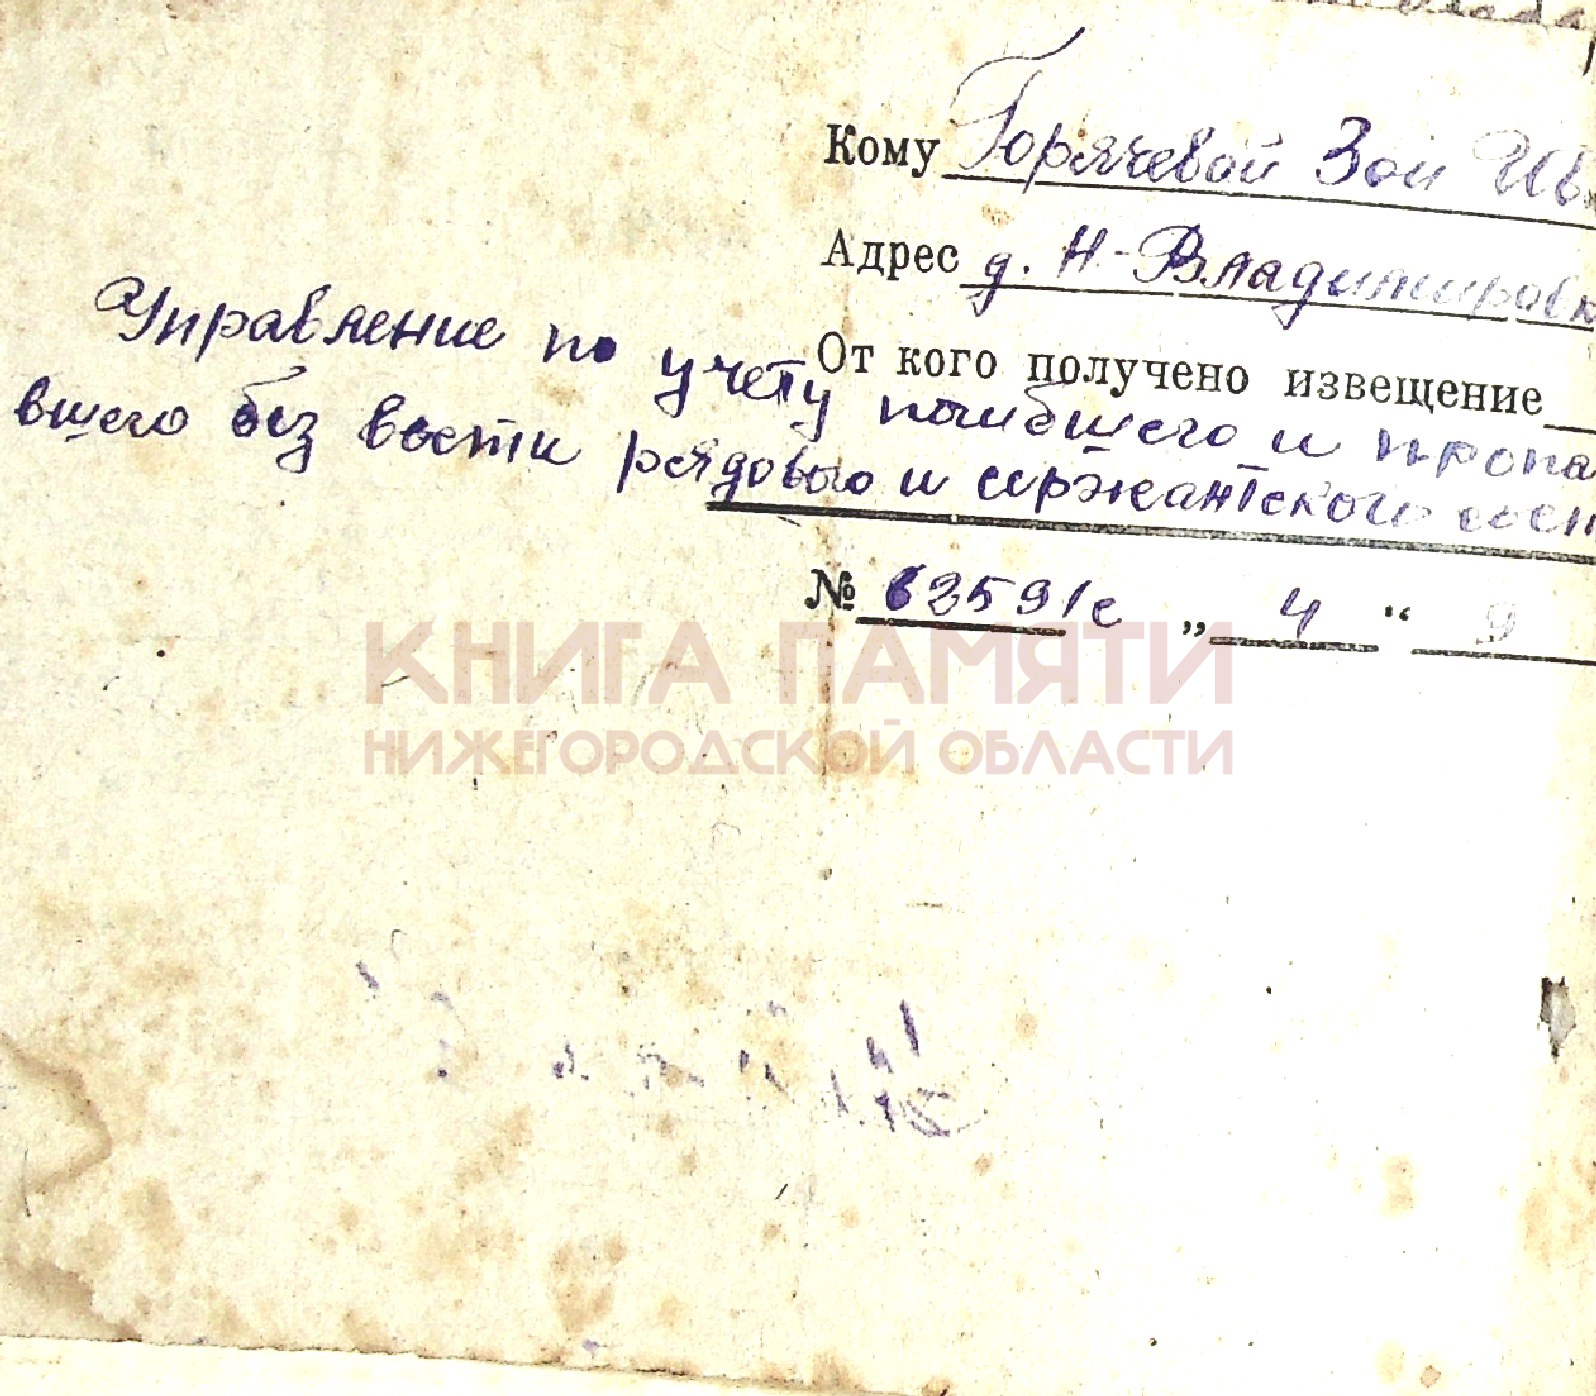 Кому Горячевой Зои Ив
Адрес д. Н-Владимировк
От кого получено извещение
Управление по учету погибшего и пропа
вшего без вести рядового и сержантского сост
№ 63591с „ 4 “ 9
КНИГА ПАМЯТИ
НИЖЕГОРОДСКОЙ ОБЛАСТИ